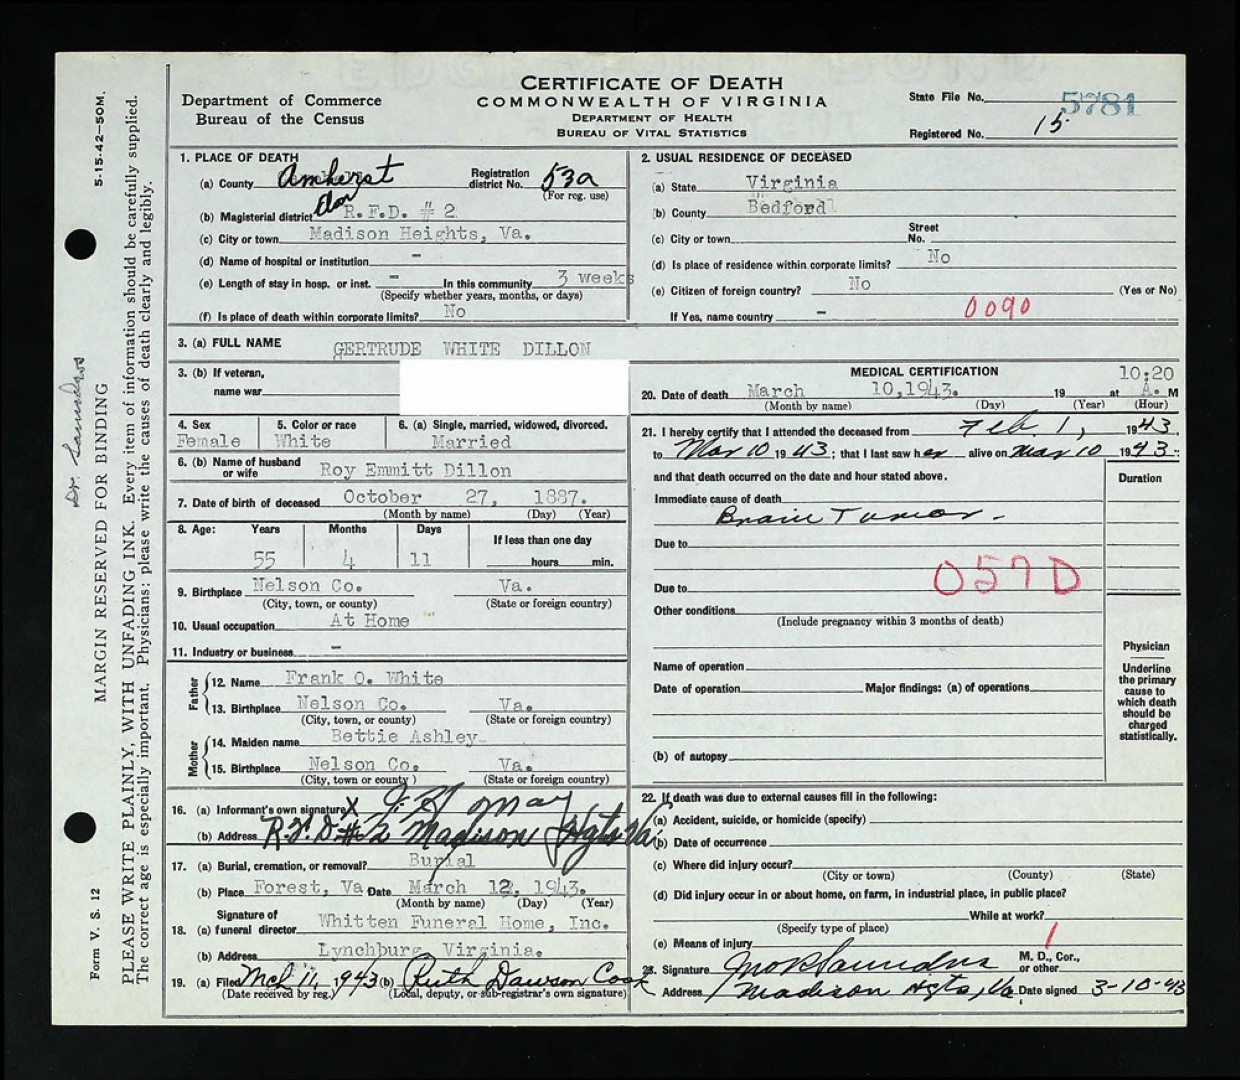 CERTIFICATE OF DEATH
COMMONWEALTH OF VIRGINIA
DEPARTMENT OF HEALTH
BUREAU OF VITAL STATISTICS
Department of Commerce
Bureau of the Census
State File No. 5781
Registered No. 15
5-15-42-50M.
MARGIN RESERVED FOR BINDING
Dr. Saunders
Form V. S. 12
PLEASE WRITE PLAINLY, WITH UNFADING INK. Every item of information should be carefully supplied.
The correct age is especially important. Physicians: please write the causes of death clearly and legibly.
1. PLACE OF DEATH
(a) County Amherst Registration district No. 53a
(For reg. use)
(b) Magisterial district Elon R.F.D. # 2
(c) City or town Madison Heights, Va.
(d) Name of hospital or institution -
(e) Length of stay in hosp. or inst. - In this community 3 weeks
(Specify whether years, months, or days)
(f) Is place of death within corporate limits? No
2. USUAL RESIDENCE OF DECEASED
(a) State Virginia
(b) County Bedford
(c) City or town Street No.
(d) Is place of residence within corporate limits? No
(e) Citizen of foreign country? No (Yes or No)
If Yes, name country - 0090
3. (a) FULL NAME GERTRUDE WHITE DILLON
3. (b) If veteran,
name war
4. Sex Female
5. Color or race White
6. (a) Single, married, widowed, divorced. Married
6. (b) Name of husband or wife Roy Emmitt Dillon
7. Date of birth of deceased October 27, 1887.
(Month by name) (Day) (Year)
8. Age: Years Months Days If less than one day
55 4 11 hours min.
9. Birthplace Nelson Co. Va.
(City, town, or county) (State or foreign country)
10. Usual occupation At Home
11. Industry or business -
Father
12. Name Frank O. White
13. Birthplace Nelson Co. Va.
(City, town, or county) (State or foreign country)
Mother
14. Maiden name Bettie Ashley
15. Birthplace Nelson Co. Va.
(City, town or county ) (State or foreign country)
16. (a) Informant's own signature X J. H. May
(b) Address R.F.D. #2 Madison Hgts Va
17. (a) Burial, cremation, or removal? Burial
(b) Place Forest, Va Date March 12, 1943.
(Month by name) (Day) (Year)
18. (a) Signature of funeral director Whitten Funeral Home, Inc.
(b) Address Lynchburg Virginia.
19. (a) Filed Mch 11, 1943 (b) Ruth Dawson Cook
(Date received by reg.) (Local, deputy, or sub-registrar's own signature)
MEDICAL CERTIFICATION
20. Date of death March 10,1943. 19 at 10:20 A. M
(Month by name) (Day) (Year) (Hour)
21. I hereby certify that I attended the deceased from Feb. 1, 1943,
to Mar 10 1943; that I last saw her alive on Mar 10 1943;
and that death occurred on the date and hour stated above. Duration
Immediate cause of death
Brain Tumor.
Due to
Due to 057D
Other conditions
(Include pregnancy within 3 months of death)
Name of operation
Date of operation Major findings: (a) of operations
(b) of autopsy
Physician
Underline
the primary
cause to
which death
should be
charged
statistically.
22. If death was due to external causes fill in the following:
(a) Accident, suicide, or homicide (specify)
(b) Date of occurrence
(c) Where did injury occur?
(City or town) (County) (State)
(d) Did injury occur in or about home, on farm, in industrial place, in public place?
While at work?
(Specify type of place)
(e) Means of injury 1
23. Signature Jno R Saunders M. D., Cor., or other
Address Madison Hgts, Va. Date signed 3-10-43